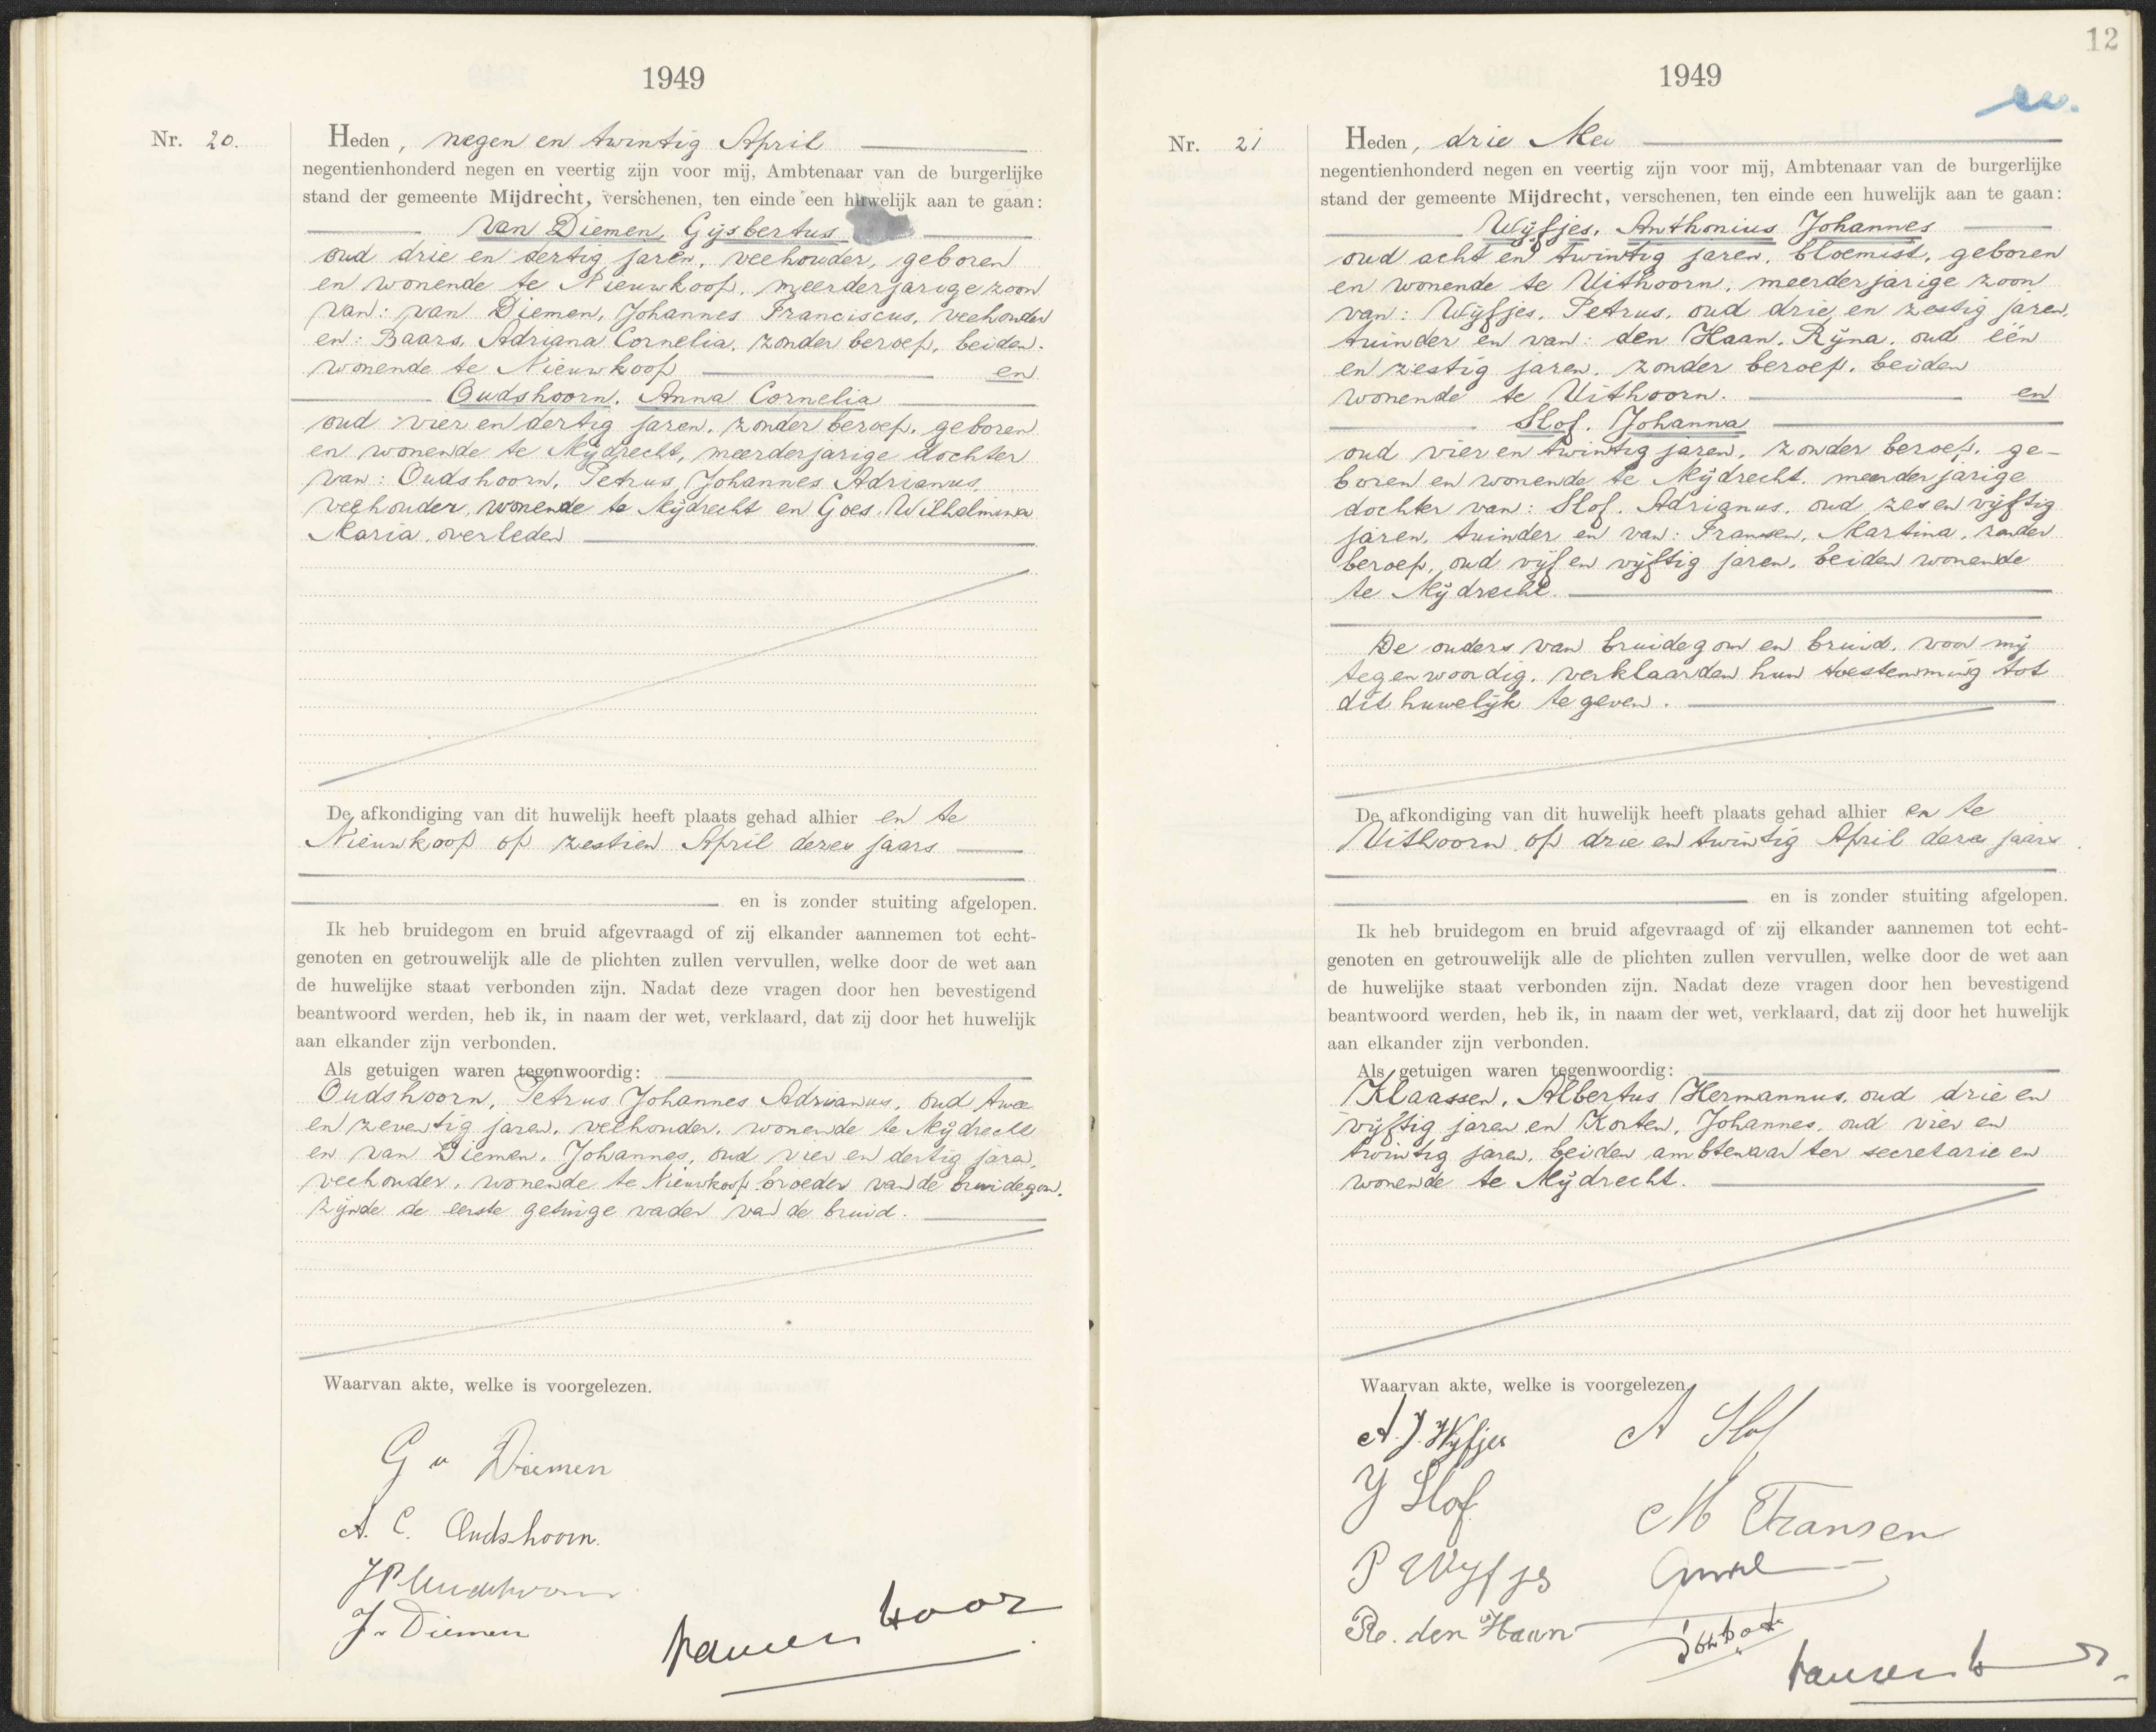 1949
Nr. 20.
Heden, negen en twintig April
negentienhonderd negen en veertig zijn voor mij, Ambtenaar van de burgerlijke
stand der gemeente Mijdrecht, verschenen, ten einde een huwelijk aan te gaan:
van Diemen, Gijsbertus
oud drie en dertig jaren, veehouder, geboren
en wonende te Nieuwkoop, meerderjarige zoon
van: van Diemen, Johannes Franciscus, veehouder
en: Baars, Adriana Cornelia, zonder beroep, beiden
wonende te Nieuwkoop en
Oudshoorn, Anna Cornelia
oud vier en dertig jaren, zonder beroep, geboren
en wonende te Mijdrecht, meerderjarige dochter
van: Oudshoorn, Petrus Johannes Adrianus,
veehouder, wonende te Mijdrecht en Goes, Wilhelmina
Maria, overleden
De afkondiging van dit huwelijk heeft plaats gehad alhier en te
Nieuwkoop op zestien April dezer jaars
en is zonder stuiting afgelopen.
Ik heb bruidegom en bruid afgevraagd of zij elkander aannemen tot echt-
genoten en getrouwelijk alle de plichten zullen vervullen, welke door de wet aan
de huwelijke staat verbonden zijn. Nadat deze vragen door hen bevestigend
beantwoord werden, heb ik, in naam der wet, verklaard, dat zij door het huwelijk
aan elkander zijn verbonden.
Als getuigen waren tegenwoordig:
Oudshoorn, Petrus Johannes Adrianus, oud twee
en zeventig jaren, veehouder, wonende te Mijdrecht
en van Diemen, Johannes, oud vier en dertig jaren,
veehouder, wonende te Nieuwkoop broeder van de bruidegom,
zijnde de eerste getuige vader van de bruid.
Waarvan akte, welke is voorgelezen.
G v Diemen
A. C. Oudshoorn.
J v Diemen
12
1949
Nr. 21
Heden, drie Mei
negentienhonderd negen en veertig zijn voor mij, Ambtenaar van de burgerlijke
stand der gemeente Mijdrecht, verschenen, ten einde een huwelijk aan te gaan:
Wijfjes, Anthonius Johannes
oud acht en twintig jaren, bloemist, geboren
en wonende te Uithoorn, meerderjarige zoon
van: Wijfjes, Petrus, oud drie en zestig jaren,
tuinder en van: den Haan, Rijna, oud één
en zestig jaren, zonder beroep, beiden
wonende te Uithoorn. en
Slof, Johanna
oud vier en twintig jaren, zonder beroep, ge-
boren en wonende te Mijdrecht, meerderjarige
dochter van: Slof, Adrianus, oud zes en vijftig
jaren, tuinder en van: Fransen, Martina, zonder
beroep, oud vijf en vijftig jaren, beiden wonende
te Mijdrecht.
De ouders van bruidegom en bruid, voor mij
tegenwoordig, verklaarden hun toestemming tot
dit huwelijk te geven.
De afkondiging van dit huwelijk heeft plaats gehad alhier en te
Uithoorn op drie en twintig April dezer jaars
en is zonder stuiting afgelopen.
Ik heb bruidegom en bruid afgevraagd of zij elkander aannemen tot echt-
genoten en getrouwelijk alle de plichten zullen vervullen, welke door de wet aan
de huwelijke staat verbonden zijn. Nadat deze vragen door hen bevestigend
beantwoord werden, heb ik, in naam der wet, verklaard, dat zij door het huwelijk
aan elkander zijn verbonden.
Als getuigen waren tegenwoordig:
Klaassen, Albertus Hermannus, oud drie en
vijftig jaren en Korten, Johannes, oud vier en
twintig jaren, beiden ambtenaar ter secretarie en
wonende te Mijdrecht.
Waarvan akte, welke is voorgelezen.
A. J. Wijfjes A Slof
J Slof
M Fransen
P Wijfjes
R. den Haan